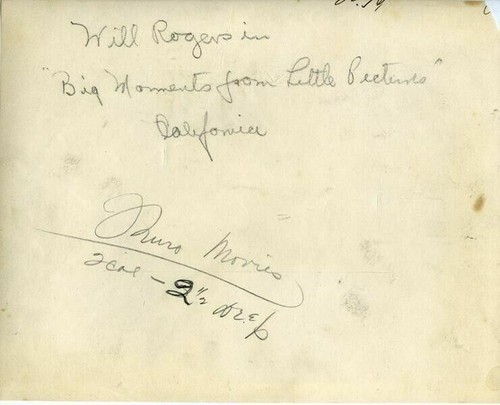 Will Rogers in
"Big Moments from Little Pictures"
California
Thurs Movies
2 col - 2 1/2 deep